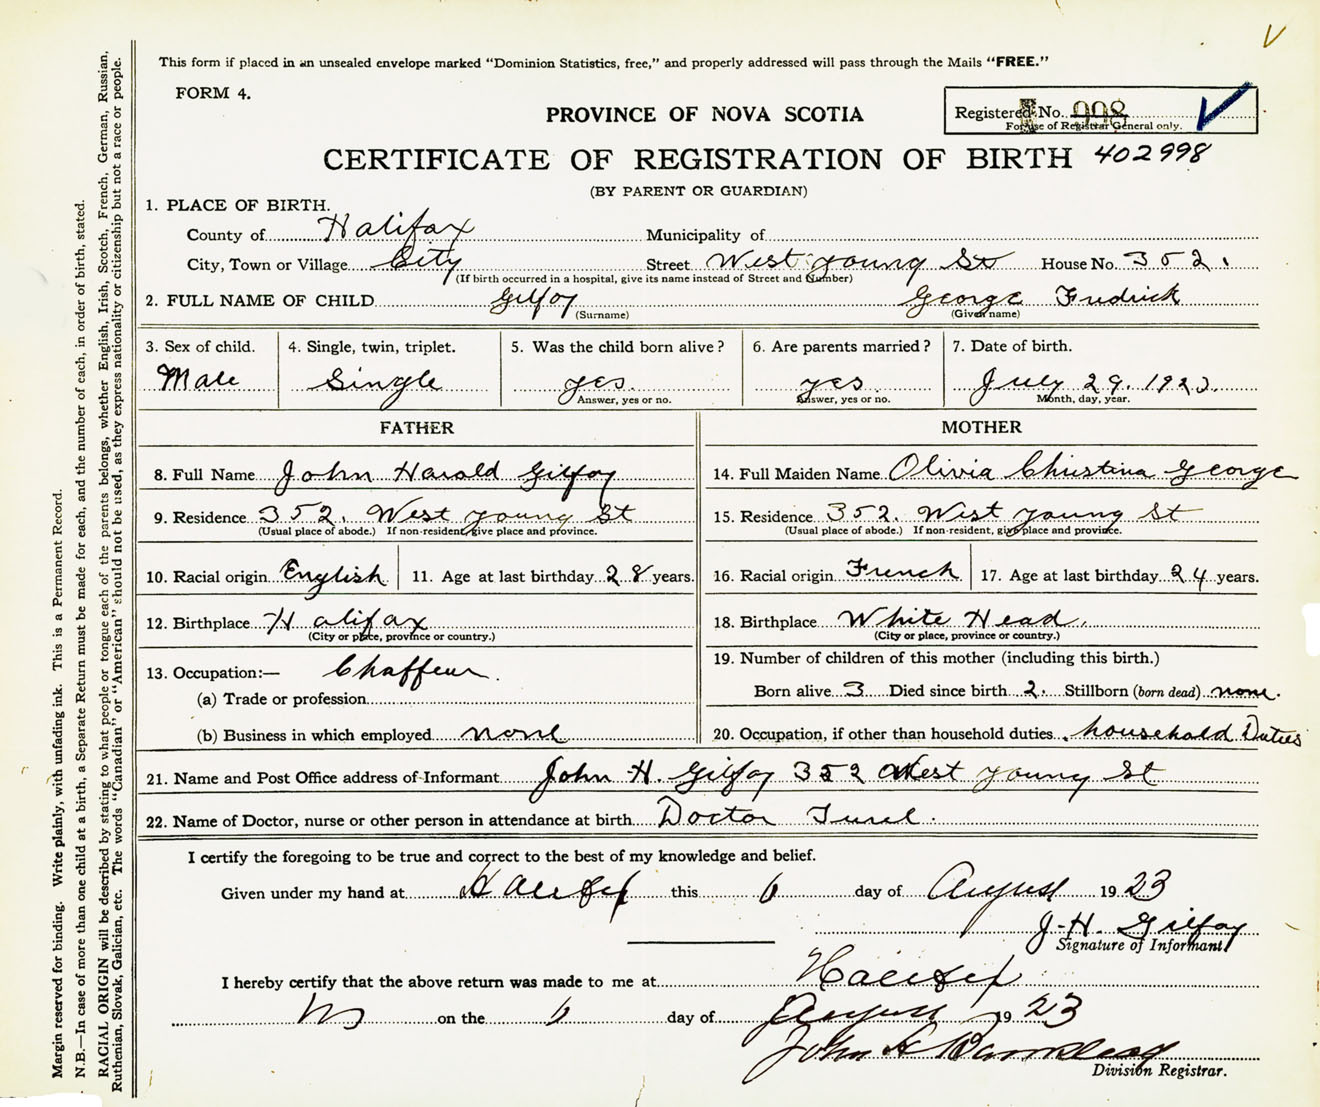 This form if placed in an unsealed envelope marked "Dominion Statistics, free," and properly addressed will pass through the Mails "FREE."
FORM 4.
PROVINCE OF NOVA SCOTIA
Registered No. 998
For use of Registrar General only.
CERTIFICATE OF REGISTRATION OF BIRTH 402998
(BY PARENT OR GUARDIAN)
1. PLACE OF BIRTH.
County of Halifax Municipality of
City, Town or Village City Street West Young St House No. 352.
(If birth occurred in a hospital, give its name instead of Street and Number)
2. FULL NAME OF CHILD Gilfoy George Fredrick
(Surname) (Given name)
3. Sex of child. 4. Single, twin, triplet. 5. Was the child born alive? 6. Are parents married? 7. Date of birth.
Male Single yes. yes. July 29. 1923.
Answer, yes or no. Answer, yes or no. Month, day, year.
FATHER
8. Full Name John Harold Gilfoy
9. Residence 352. West Young St
(Usual place of abode.) If non-resident, give place and province.
10. Racial origin English 11. Age at last birthday 28 years.
12. Birthplace Halifax
(City or place, province or country.)
13. Occupation:— Chaffeur.
(a) Trade or profession
(b) Business in which employed none
MOTHER
14. Full Maiden Name Olivia Christina George
15. Residence 352. West Young St
(Usual place of abode.) If non-resident, give place and province.
16. Racial origin French 17. Age at last birthday 24 years.
18. Birthplace White Head.
(City or place, province or country.)
19. Number of children of this mother (including this birth.)
Born alive 3 Died since birth 2. Stillborn (born dead) none.
20. Occupation, if other than household duties household Duties
21. Name and Post Office address of Informant John H. Gilfoy 352 West Young St
22. Name of Doctor, nurse or other person in attendance at birth Doctor
I certify the foregoing to be true and correct to the best of my knowledge and belief.
Given under my hand at Halifax this 6 day of August 1923
J. H. Gilfoy
Signature of Informant
I hereby certify that the above return was made to me at Halifax
on the 6 day of August 1923
John
Division Registrar.
Margin reserved for binding. Write plainly, with unfading ink. This is a Permanent Record.
N.B.—In case of more than one child at a birth, a Separate Return must be made for each, and the number of each, in order of birth, stated.
RACIAL ORIGIN will be described by stating to what people or tongue each of the parents belongs, whether English, Irish, Scotch, French, German, Russian,
Ruthenian, Slovak, Galician, etc. The words "Canadian" or "American" should not be used, as they express nationality or citizenship but not a race or people.